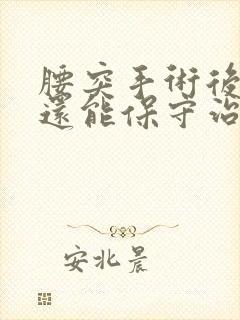 腰突手術後
還能保守治
安北晨